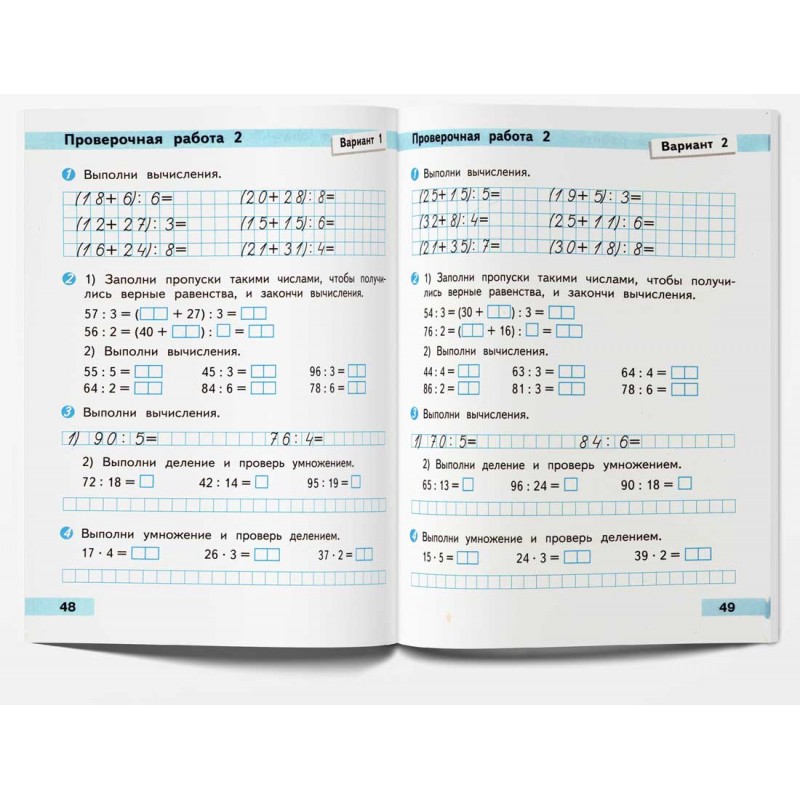 Проверочная работа 2
Вариант 1
1 Выполни вычисления.
(18+6):6= (20+28):8=
(12+27):3= (15+15):6=
(16+24):8= (21+31):4=
2 1) Заполни пропуски такими числами, чтобы получи-
лись верные равенства, и закончи вычисления.
57 : 3 = ( + 27) : 3 =
56 : 2 = (40 + ) : =
2) Выполни вычисления.
55 : 5 = 45 : 3 = 96 : 3 =
64 : 2 = 84 : 6 = 78 : 6 =
3 Выполни вычисления.
1) 90:5= 76:4=
2) Выполни деление и проверь умножением.
72 : 18 = 42 : 14 = 95 : 19 =
4 Выполни умножение и проверь делением.
17 · 4 = 26 · 3 = 37 · 2 =
48
Проверочная работа 2
Вариант 2
1 Выполни вычисления.
(25+15):5= (19+5):3=
(32+8):4= (25+11):6=
(21+35):7= (30+18):8=
2 1) Заполни пропуски такими числами, чтобы получи-
лись верные равенства, и закончи вычисления.
54 : 3 = (30 + ) : 3 =
76 : 2 = ( + 16) : =
2) Выполни вычисления.
44 : 4 = 63 : 3 = 64 : 4 =
86 : 2 = 81 : 3 = 78 : 6 =
3 Выполни вычисления.
1) 70:5= 84:6=
2) Выполни деление и проверь умножением.
65 : 13 = 96 : 24 = 90 : 18 =
4 Выполни умножение и проверь делением.
15 · 5 = 24 · 3 = 39 · 2 =
49